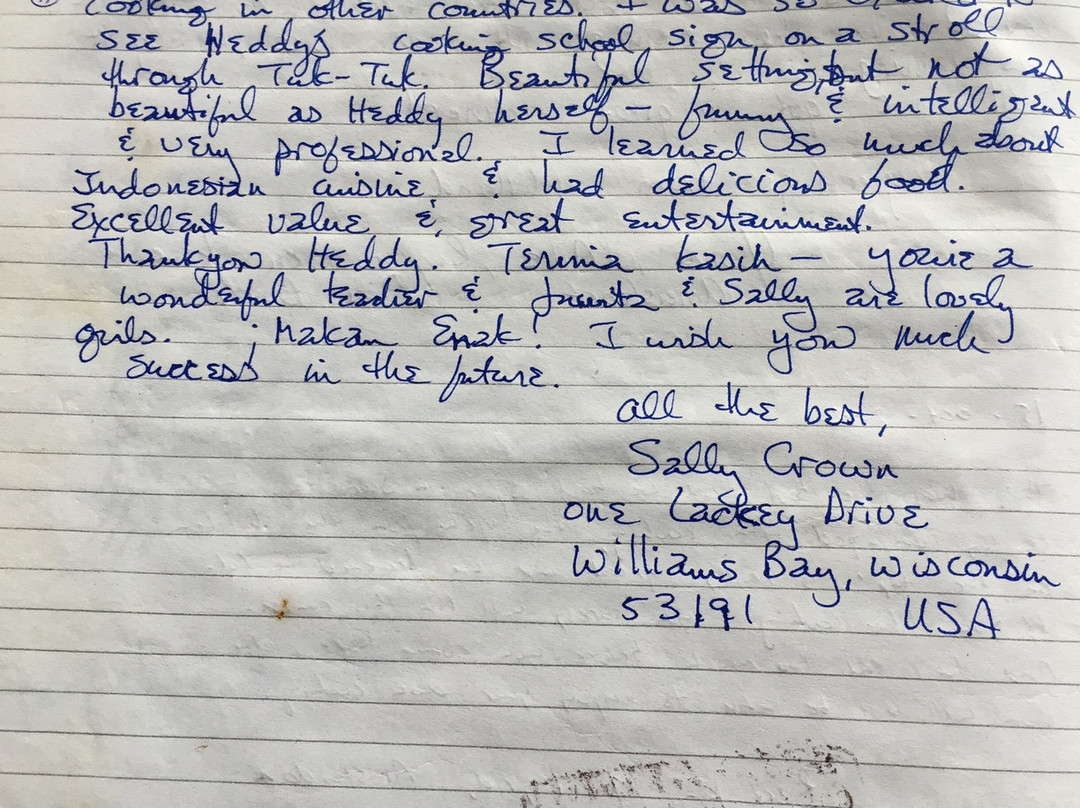 cooking in other countries. I was so excited to
see Heddy's cooking school sign on a stroll
through Tuk-Tuk. Beautiful setting, but not as
beautiful as Heddy herself — funny & intelligent
& very professional. I learned so much about
Indonesian cuisine & had delicious food.
Excellent value & great entertainment.
Thankyou Heddy. Terima kasih — you're a
wonderful teacher & & Sally are lovely
girls. ¡Makan Enak! I wish you much
success in the future.
all the best,
Sally Crown
one Lackey Drive
Williams Bay, Wisconsin
53191 USA